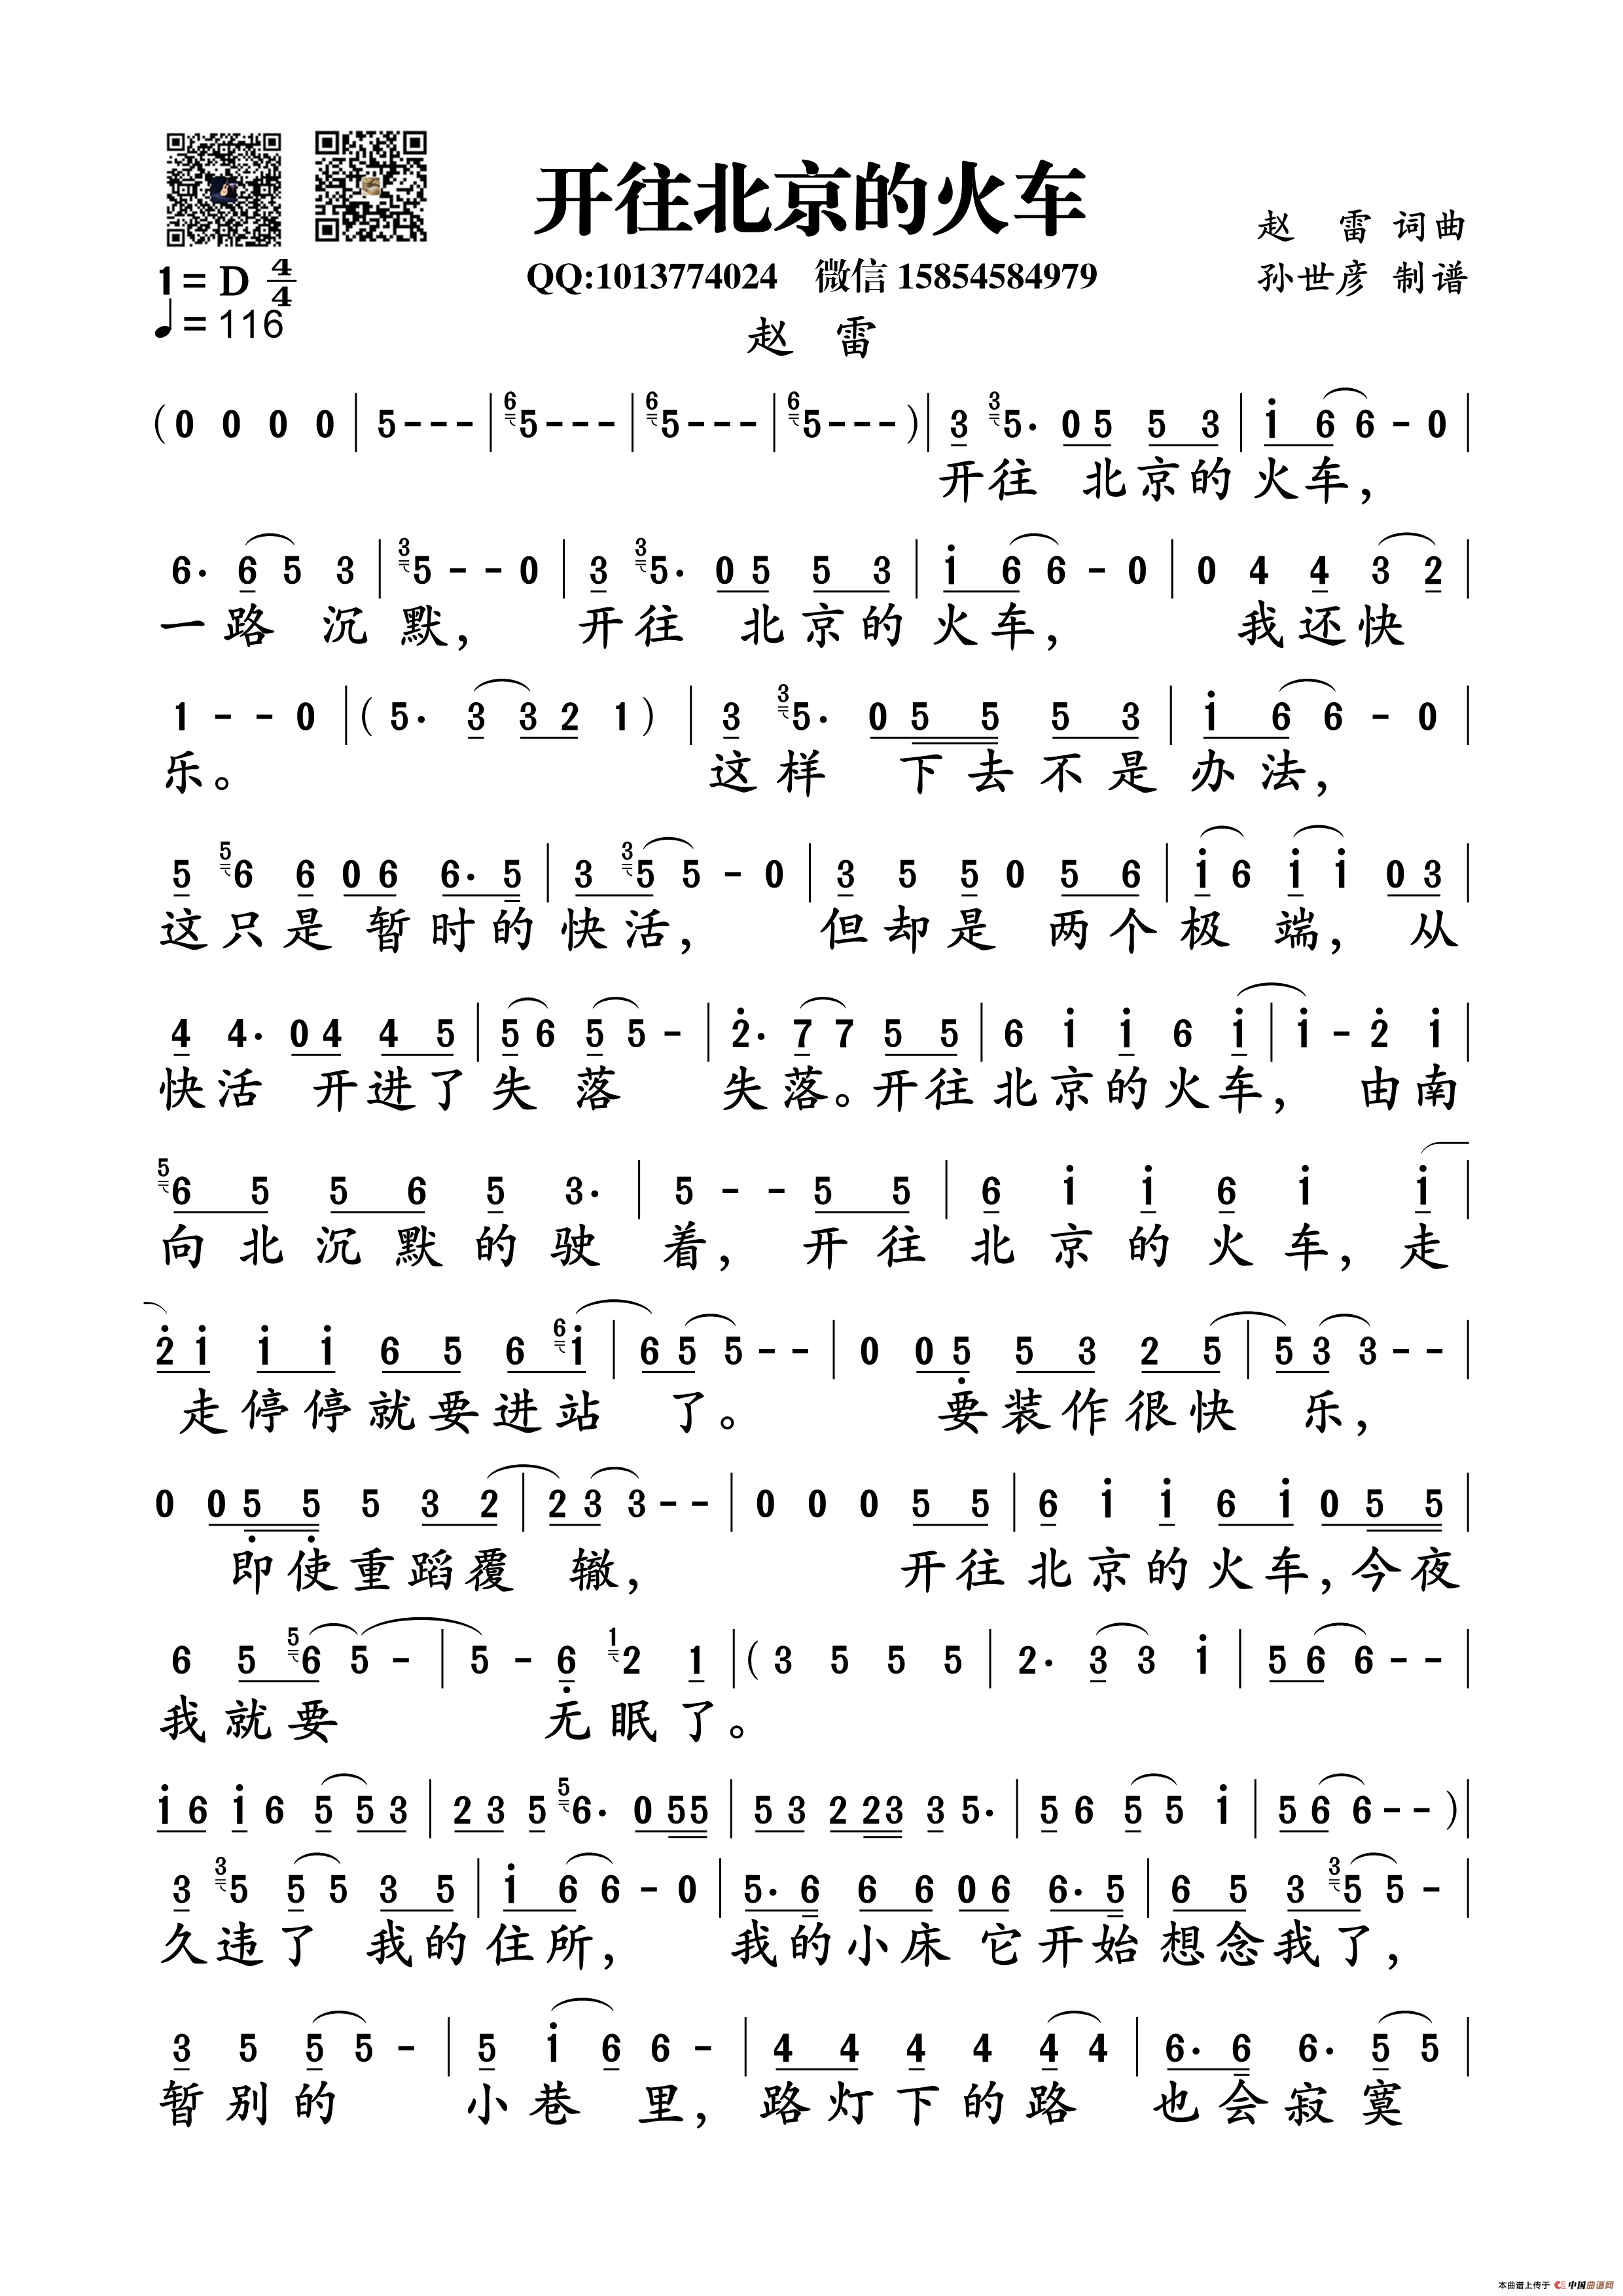 开往北京的火车
赵 雷 词曲
QQ:1013774024 微信 15854584979
孙世彦 制谱
1= D 4/4
♩= 116
赵 雷
(0 0 0 0 | 5 - - - | 6 5 - - - | 6 5 - - - | 6 5 - - - ) | 3 3 5· 0 5 5 3 | i 6 6 - 0 |
开往 北京的火车，
6· 6 5 3 | 3 5 - - 0 | 3 3 5· 0 5 5 3 | i 6 6 - 0 | 0 4 4 3 2 |
一路 沉默， 开往 北京的火车， 我还快
1 - - 0 | ( 5· 3 3 2 1 ) | 3 3 5· 0 5 5 5 3 | i 6 6 - 0 |
乐。 这样 下去不是办法，
5 5 6 6 0 6 6· 5 | 3 3 5 5 - 0 | 3 5 5 0 5 6 | i 6 i i 0 3 |
这只是 暂时的快活， 但却是 两个极 端， 从
4 4· 0 4 4 5 | 5 6 5 5 - | 2· 7 7 5 5 | 6 i i 6 i | i - 2 i |
快活 开进了失 落 失落。开往北京的火车， 由南
5 6 5 5 6 5 3· | 5 - - 5 5 | 6 i i 6 i i |
向北沉默的驶 着， 开往北京的火车，走
2 i i i 6 5 6 6 i | 6 5 5 - - | 0 0 5 5 3 2 5 | 5 3 3 - - |
走停停就要进站 了。 要装作很快 乐，
0 0 5 5 5 3 2 | 2 3 3 - - | 0 0 0 5 5 | 6 i i 6 i 0 5 5 |
即使重蹈覆 辙， 开往北京的火车，今夜
6 5 5 6 5 - | 5 - 6 1 2 1 | ( 3 5 5 5 | 2· 3 3 i | 5 6 6 - - |
我就要 无眠了。
i 6 i 6 5 5 3 | 2 3 5 5 6· 0 5 5 | 5 3 2 2 3 3 5· | 5 6 5 5 i | 5 6 6 - - ) |
3 3 5 5 5 3 5 | i 6 6 - 0 | 5· 6 6 6 0 6 6· 5 | 6 5 3 3 5 5 - |
久违了 我的住所， 我的小床 它开始想念我了，
3 5 5 5 - | 5 i 6 6 - | 4 4 4 4 4 4 | 6· 6 6· 5 5 |
暂别的 小巷 里， 路灯下的路 也会寂寞
本曲谱上传于 中国曲谱网